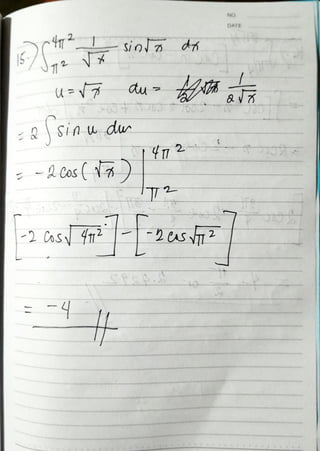 NO
DATE
15.) ∫_{π²}^{4π²} 1/√x sin√x dx
u = √x du = 1/(2√x)
= 2 ∫ sin u du
= -2 cos(√x) |_{π²}^{4π²}
[-2 cos√4π²] - [-2 cos√π²]
= -4 //